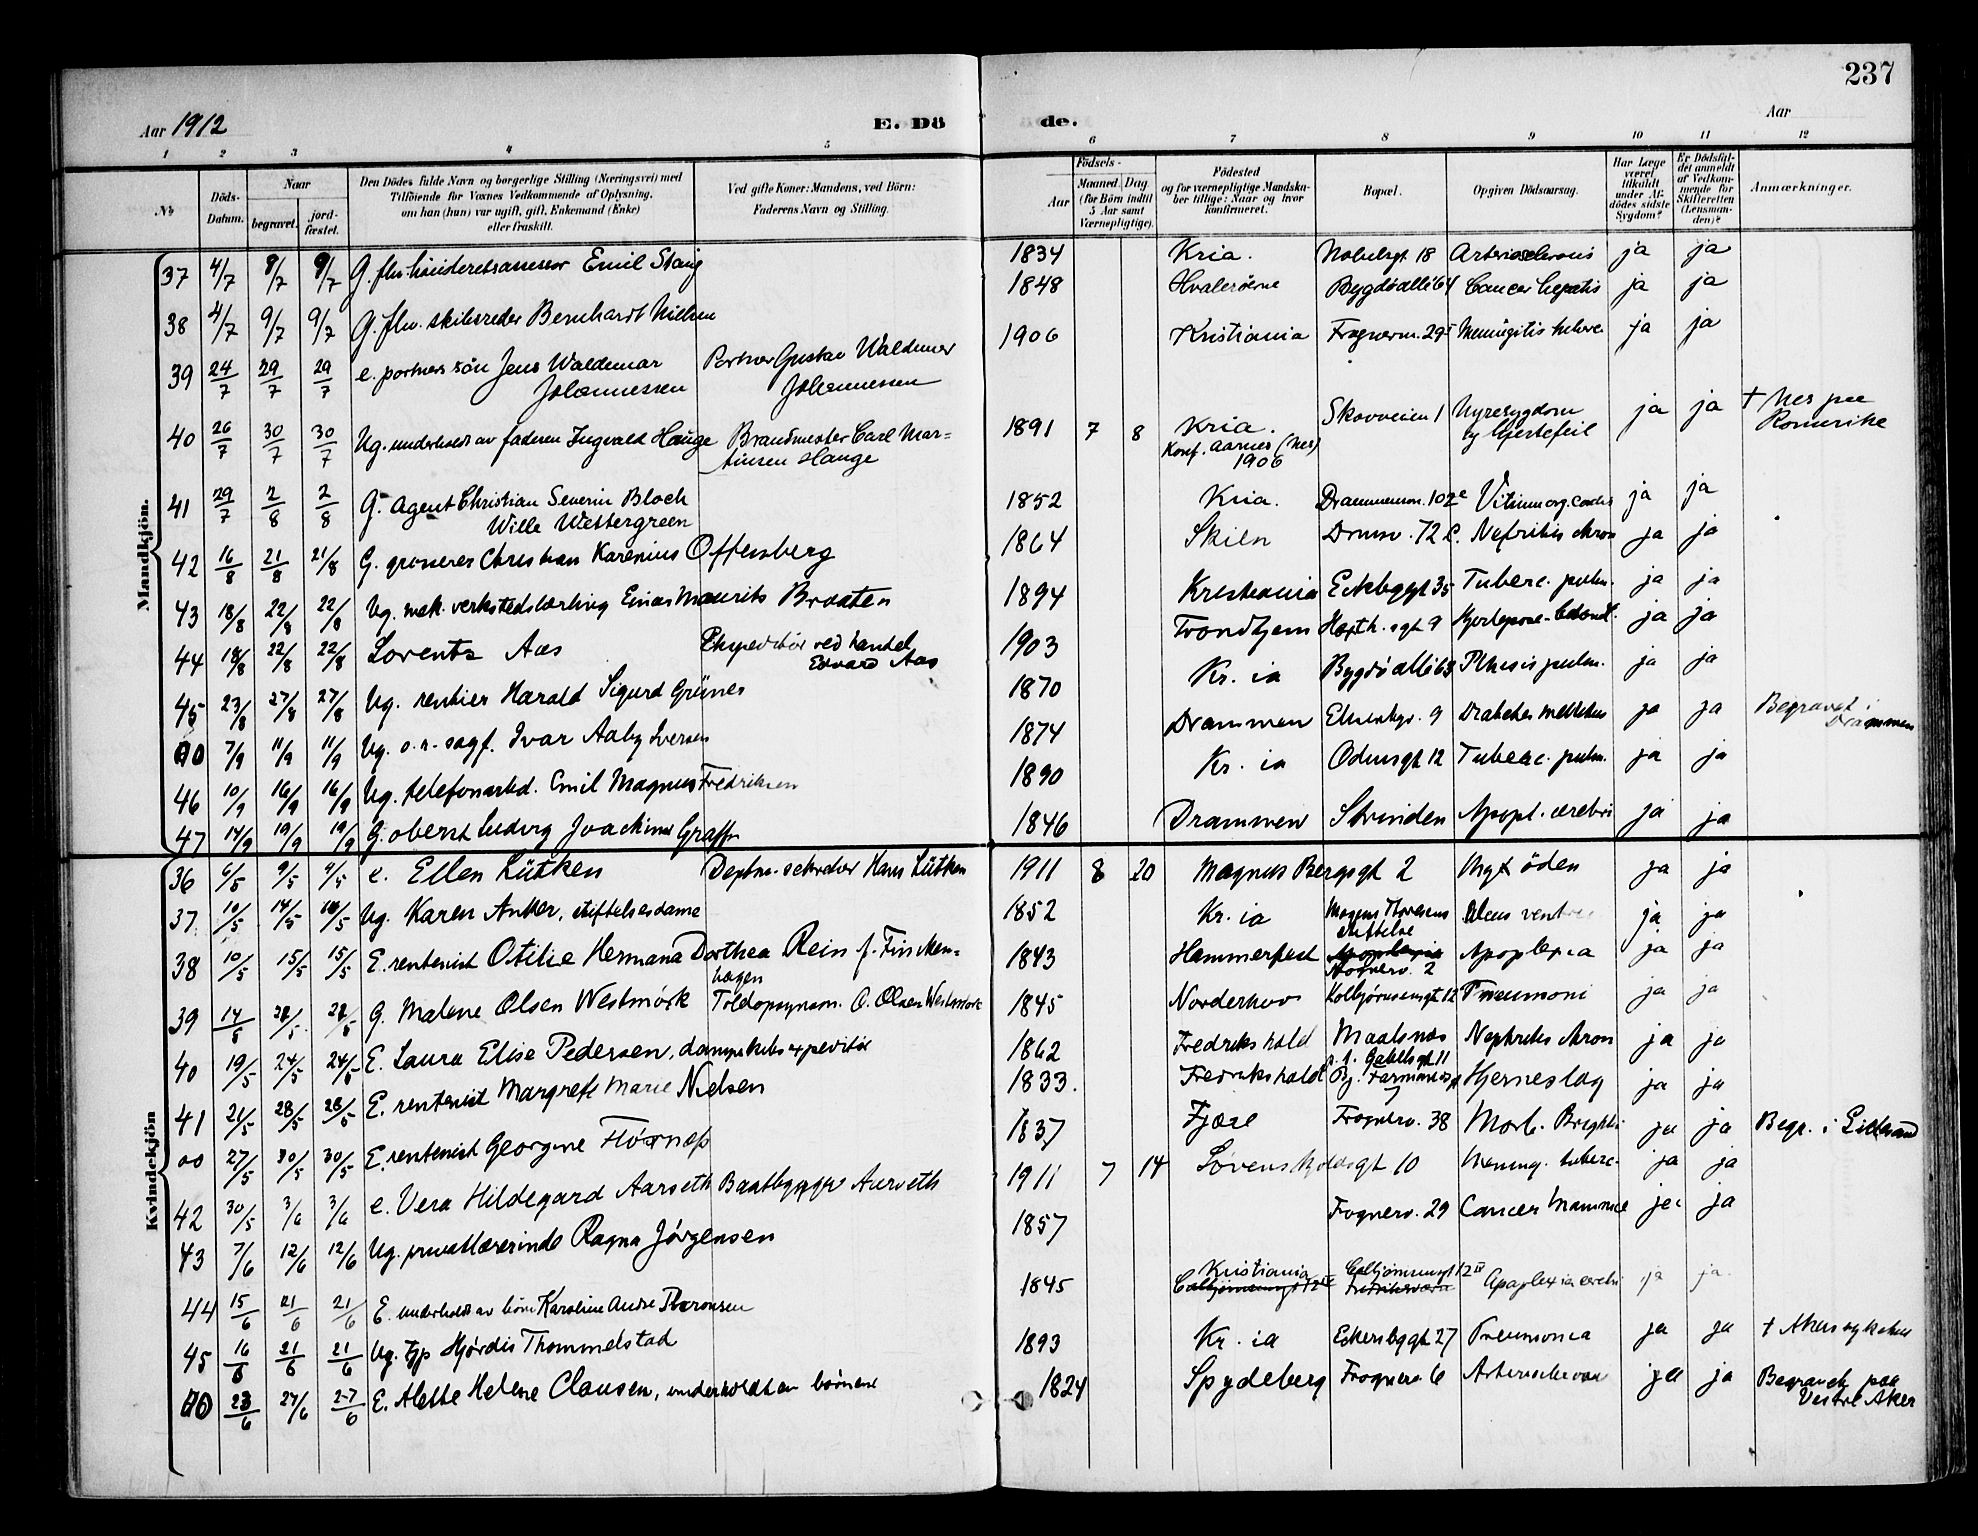 237
Aar 1912
E. Dö
de.
Aar
1 2 3 4 5 6 7 8 9 10 11 12
№
Döds-Datum.
Naar
begravet.
jord-fæstet.
Den Dödes fulde Navn og borgerlige Stilling (Næringsvei) med
Tilföiende for Voxnes Vedkommende af Oplysning,
om han (hun) var ugift, gift, Enkemand (Enke)
eller fraskilt.
Ved gifte Koner: Mandens, ved Börn:
Faderens Navn og Stilling.
Födsels-
Aar
Maaned Dag
(for Börn indtil
5 Aar samt
Værnepligtige).
Födested
og for værnepligtige Mandska-
ber tillige: Naar og hvor
konfirmeret.
Bopæl.
Opgiven Dödsaarsag.
Har Læge
været
tilkaldt
under Af-
dödes sidste
Sygdom?
Er Dödsfal-
det anmeldt
af Vedkom-
mende for
Skifteretten
(Lensman-
den)?
Anmærkninger.
Mandkjön.
37 4/7 8/7 9/7 G. Emil Stang 1834 Kria. Nobelsgt 18 Arteriosclerosis ja ja
38 4/7 9/7 9/7 G. fhv. skibsreder Bernhardt Nielsen 1848 Hvalerøerne Bygdø alle 64 Cancer hepatis ja ja
39 24/7 29/7 29/7 e. portners søn Jens Waldemar Johannessen Portner Gustav Waldemar Johannessen 1906 Kristiania Frognerv. 29 Meningitis ja ja
40 26/7 30/7 30/7 Ug. underholdt av faderen Ingvald Hauge Brandmester Carl Martinsen Hauge 1891 7 8 Kria. Konf. Aarnes (Nes) 1906 Skovveien 1 Nyresygdom og Hjertefeil ja ja † Nes paa Romerike
41 29/7 2/8 2/8 G. Agent Christian Severin Bloch Wille Westergreen 1852 Kria. Drammensv. 102 Vitium org. cordis ja ja
42 16/8 21/8 21/8 G. grosserer Christian Karenius Offenberg 1864 Skien Drmsv. 72 C. Nefritis chron ja ja
43 18/8 22/8 22/8 Ug. mek. verkstedslærling Einar Maurits Braaten 1894 Kristiania Eckbggt 35 Tuberc. pulm. ja ja
44 18/8 22/8 22/8 Lorentz Aas Ekspeditør ved handel Edvard Aas 1903 Trondhjem ja ja
45 23/8 27/8 27/8 Ug. rentier Harald Sigurd Grünes 1870 Kr. ia Bygdø alle 63 Phtisis pulm. ja ja
00 7/9 11/9 11/9 Ug. o.r. sagf. Ivar Aaby Iversen 1874 Drammen 9 Diabetes mellitus ja ja Begravet i Drammen
46 10/9 16/9 16/9 Ug. telefonarbd. Emil Magnus Fredriksen 1890 Kr. ia Odinsgt 12 Tuberc. pulm. ja ja
47 14/9 19/9 19/9 G. oberst Ludvig Joachim Graff 1846 Drammen Strinden Apopl. cerebri ja ja
Kvindekjön
36 6/5 9/5 9/5 e. Ellen Lütken Deptm. sekretær Hans Lütken 1911 8 20 Magnus Bergsgt 2 ja ja
37 10/5 14/5 Ug. Karen Anker, stiftelsesdame 1852 Kr. ia Mogens Thoresens stiftelse Ulcus ja ja
38 10/5 15/5 15/5 E. rentenist Otilie Hermana Dorthea Rein f. Finckenhagen 1843 Hammerfest 2 Apoplexia ja ja
39 14/5 G. Malene Olsen Westmørk Toldopsynsm. O. Olsen Westmørk 1845 Norderhov Kolbjørnsensgt 12 Pneumoni ja ja
40 19/5 24/5 24/5 E. Laura Elise Pedersen, dampskibsexpeditør 1862 Fredrikshald Gabelsgt 11 Nephritis chron ja ja
41 21/5 28/5 28/5 E. rentenist Margrete Marie Nielsen 1833. Fredrikshald Hjerneslag ja ja
00 27/5 30/5 30/5 E. rentenist Georgine 1837 Fjære Frognerv. 38 Morb. Brightii ja ja Begr. i Lillesand
42 30/5 3/6 3/6 e. Vera Hildegard Aarseth Baatbygger Aarseth 1911 7 14 Løvenskjoldsgt 10 Mening. tuberc. ja ja
43 7/6 12/6 12/6 Ug. privatlærerinde Ragna Jørgensen 1857 Frognerv. 29 Cancer Mammae ja ja
44 15/6 21/6 21/6 E. underholdt av børn Karoline Andr. 1845 Kristiania Colbjørnsensgt 12 Apoplexia cerebri ja ja
45 16/6 21/6 21/6 Ug. Hjørdis Thommelstad 1893 Kr. ia Eckersbggt 27 Pneumonia ja ja † Aker sykehus
00 23/6 27/6 27/6 E. Alette Helene Clausen, underholdt av børnene 1824 Spydeberg Frognerv 6 ja ja Begravet paa Vestre Aker